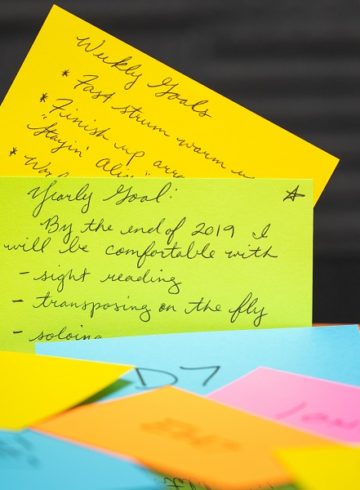 Weekly Goals
* Fast strum warm
* Finish up
"Stayin' Alive"
*
Yearly Goal: ☆
By the end of 2019 I
will be comfortable with
- sight reading
- transposing on the fly
- soloing
D7